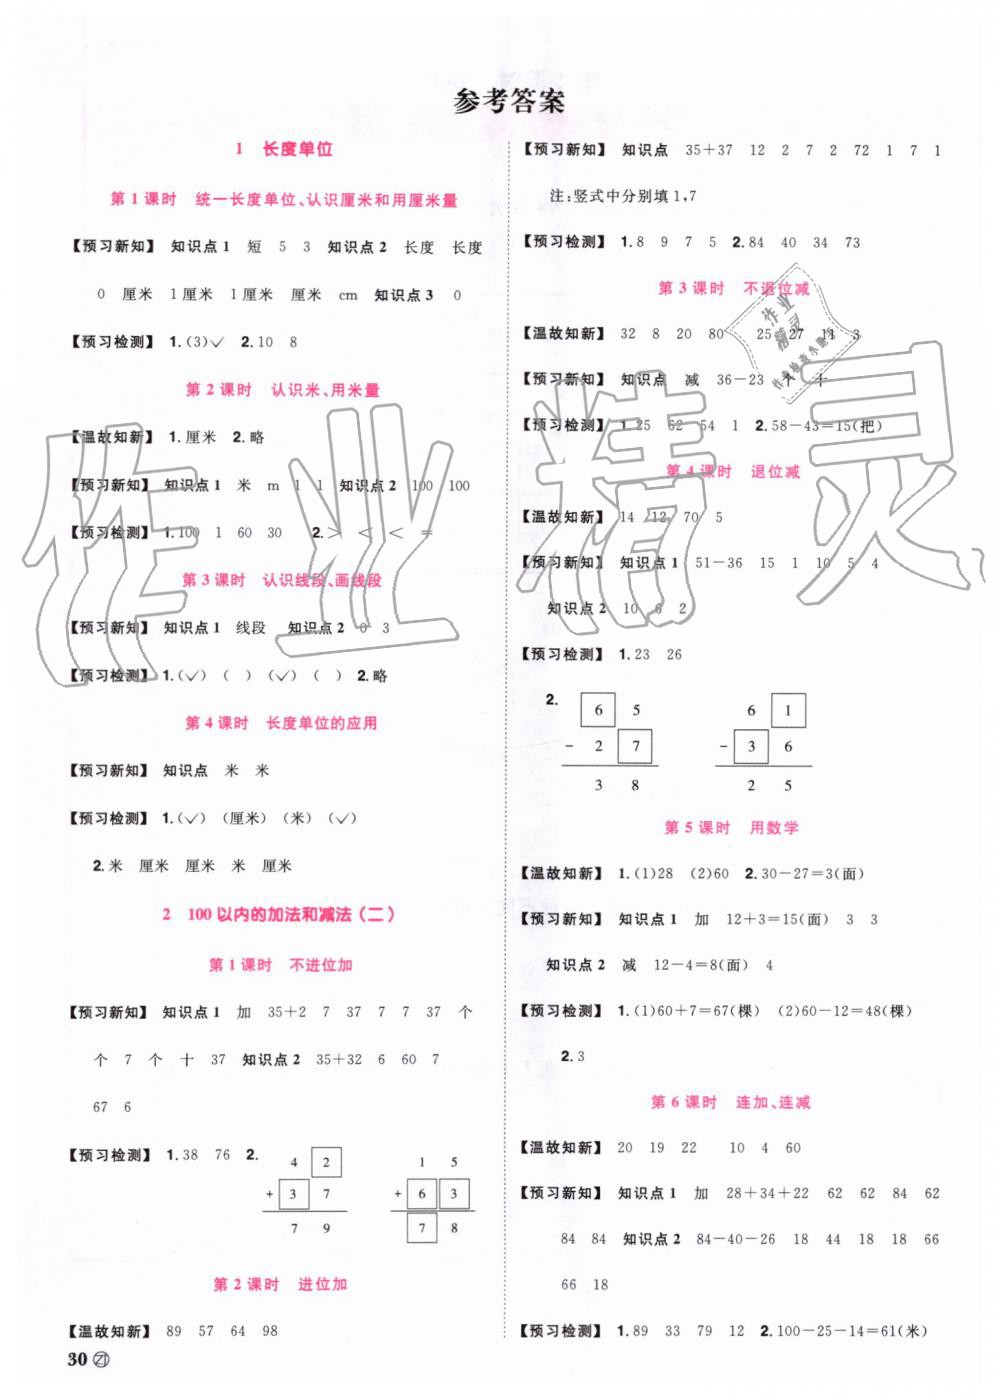 参考答案
1 长度单位
第1课时 统一长度单位、认识厘米和用厘米量
【预习新知】 知识点1 短 5 3 知识点2 长度 长度
0 厘米 1厘米 1厘米 厘米 cm 知识点3 0
【预习检测】 1.(3)✓ 2.10 8
第2课时 认识米、用米量
【温故知新】 1.厘米 2.略
【预习新知】 知识点1 米 m 1 1 知识点2 100 100
【预习检测】 1.100 1 60 30 2.> < < =
第3课时 认识线段、画线段
【预习新知】 知识点1 线段 知识点2 0 3
【预习检测】 1.(✓) ( ) (✓) ( ) 2.略
第4课时 长度单位的应用
【预习新知】 知识点 米 米
【预习检测】 1.(✓) (厘米) (米) (✓)
2.米 厘米 厘米 米 厘米
2 100以内的加法和减法(二)
第1课时 不进位加
【预习新知】 知识点1 加 35+2 7 37 7 7 37 个
个 7 个 十 37 知识点2 35+32 6 60 7
67 6
【预习检测】 1.38 76 2.
4 2 1 5
+ 3 7 + 6 3
7 9 7 8
第2课时 进位加
【温故知新】 89 57 64 98
30 ZJ
【预习新知】 知识点 35+37 12 2 7 2 72 1 7 1
注:竖式中分别填1,7
【预习检测】 1.8 9 7 5 2.84 40 34 73
第3课时 不退位减
【温故知新】 32 8 20 80 25 27 11 3
【预习新知】 知识点 减 36-23 个 十
【预习检测】 1.25 62 54 1 2.58-43=15(把)
第4课时 退位减
【温故知新】 14 12 70 5
【预习新知】 知识点1 51-36 15 1 10 5 4
知识点2 10 6 2
【预习检测】 1.23 26
2.
6 5 6 1
- 2 7 - 3 6
3 8 2 5
第5课时 用数学
【温故知新】 1.(1)28 (2)60 2.30-27=3(面)
【预习新知】 知识点1 加 12+3=15(面) 3 3
知识点2 减 12-4=8(面) 4
【预习检测】 1.(1)60+7=67(棵) (2)60-12=48(棵)
2.3
第6课时 连加、连减
【温故知新】 20 19 22 10 4 60
【预习新知】 知识点1 加 28+34+22 62 62 84 62
84 84 知识点2 84-40-26 18 44 18 18 66
66 18
【预习检测】 1.89 33 79 12 2.100-25-14=61(米)
作业精灵
作业
精灵